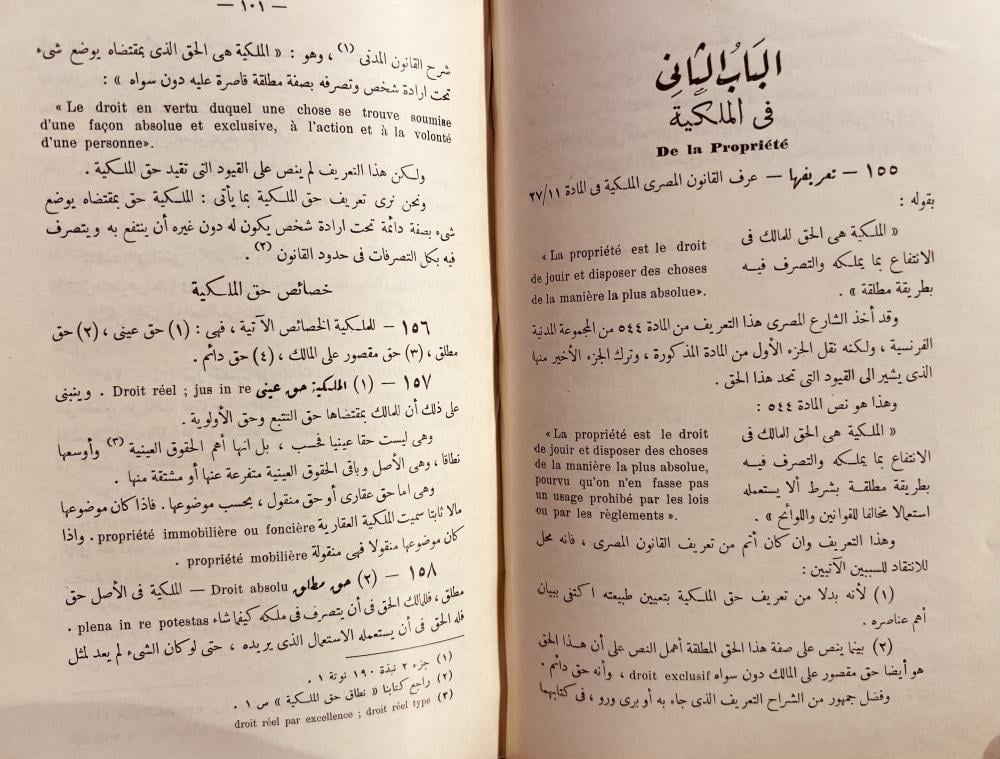 الباب الثاني
في الملكية
De la Propriété
١٥٥ — تعريفها — عرف القانون المصرى الملكية فى المادة ٢٧/١١
بقوله :
« الملكية هى الحق للمالك فى
الانتفاع بما يملكه والتصرف فيه
بطريقة مطلقة » .
« La propriété est le droit
de jouir et disposer des choses
de la manière la plus absolue».
وقد أخذ الشارع المصرى هذا التعريف من المادة ٥٤٤ من المجموعة المدنية
الفرنسية ، ولكنه نقل الجزء الأول من المادة المذكورة ، وترك الجزء الأخير منها
الذى يشير الى القيود التى تحد هذا الحق .
وهذا هو نص المادة ٥٤٤ :
« الملكية هى الحق للمالك فى
الانتفاع بما يملكه والتصرف فيه
بطريقة مطلقة بشرط ألا يستعمله
استعمالا مخالفا للقوانين واللوائح » .
« La propriété est le droit
de jouir et disposer des choses
de la manière la plus absolue,
pourvu qu'on n'en fasse pas
un usage prohibé par les lois
ou par les règlements ».
وهذا التعريف وان كان أتم من تعريف القانون المصرى ، فانه محل
للانتقاد للسببين الآتيين :
(١) لأنه بدلا من تعريف حق الملكية بتعيين طبيعته اكتفى ببيان
أهم عناصره .
(٢) بينما ينص على صفة هذا الحق المطلقة أهمل النص على أن هذا الحق
هو أيضا حق مقصور على المالك دون سواه droit exclusif ، وأنه حق دائم .
وفضل جمهور من الشراح التعريف الذى جاء به أوبرى ورو ، فى كتابهما
— ١٠١ —
شرح القانون المدنى (١) ، وهو : « الملكية هى الحق الذى بمقتضاه يوضع شىء
تحت ارادة شخص وتصرفه بصفة مطلقة قاصرة عليه دون سواه » :
« Le droit en vertu duquel une chose se trouve soumise
d'une façon absolue et exclusive, à l'action et à la volonté
d'une personne».
ولكن هذا التعريف لم ينص على القيود التى تقيد حق الملكية .
ونحن نرى تعريف حق الملكية بما يأتى : الملكية حق بمقتضاه يوضع
شىء بصفة دائمة تحت ارادة شخص يكون له دون غيره أن ينتفع به ويتصرف
فيه بكل التصرفات فى حدود القانون (٢) .
خصائص حق الملكية
١٥٦ — للملكية الخصائص الآتية ، فهى : (١) حق عينى ، (٢) حق
مطلق ، (٣) حق مقصور على المالك ، (٤) حق دائم .
١٥٧ — (١) الملكية حق عينى Droit réel ; jus in re . وينبنى
على ذلك أن للمالك بمقتضاها حق التتبع وحق الأولوية .
وهى ليست حقا عينيا فحسب ، بل انها أهم الحقوق العينية (٣) وأوسعها
نطاقا ، وهى الأصل وباقى الحقوق العينية متفرعة عنها أو مشتقة منها .
وهى اما حق عقارى أو حق منقول ، بحسب موضوعها . فاذا كان موضوعها
مالا ثابتا سميت الملكية العقارية propriété immobilière ou foncière . واذا
كان موضوعها منقولا فهى منقولة propriété mobilière .
١٥٨ — (٢) حق مطلق Droit absolu — الملكية فى الأصل حق
مطلق ، فللمالك الحق فى أن يتصرف فى ملكه كيفما شاء plena in re potestas .
فله الحق فى أن يستعمله الاستعمال الذى يريده ، حتى لو كان الشىء لم يعد لمثل
(١) جزء ٢ نبذة ١٩٠ نوتة ١ .
(٢) راجع كتابنا « نطاق حق الملكية » ص ١ .
(٣) droit réel par excellence ; droit réel type